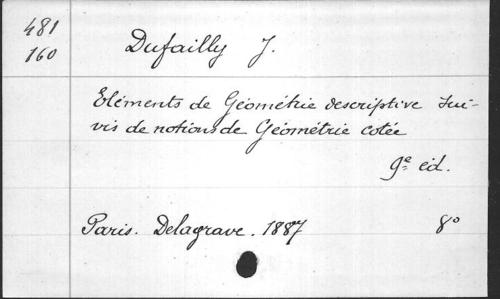 481
160
Dufailly J.
Eléments de Géométrie descriptive sui-
vis de notions de Géométrie cotée
9e éd.
Paris. Delagrave. 1887 8°